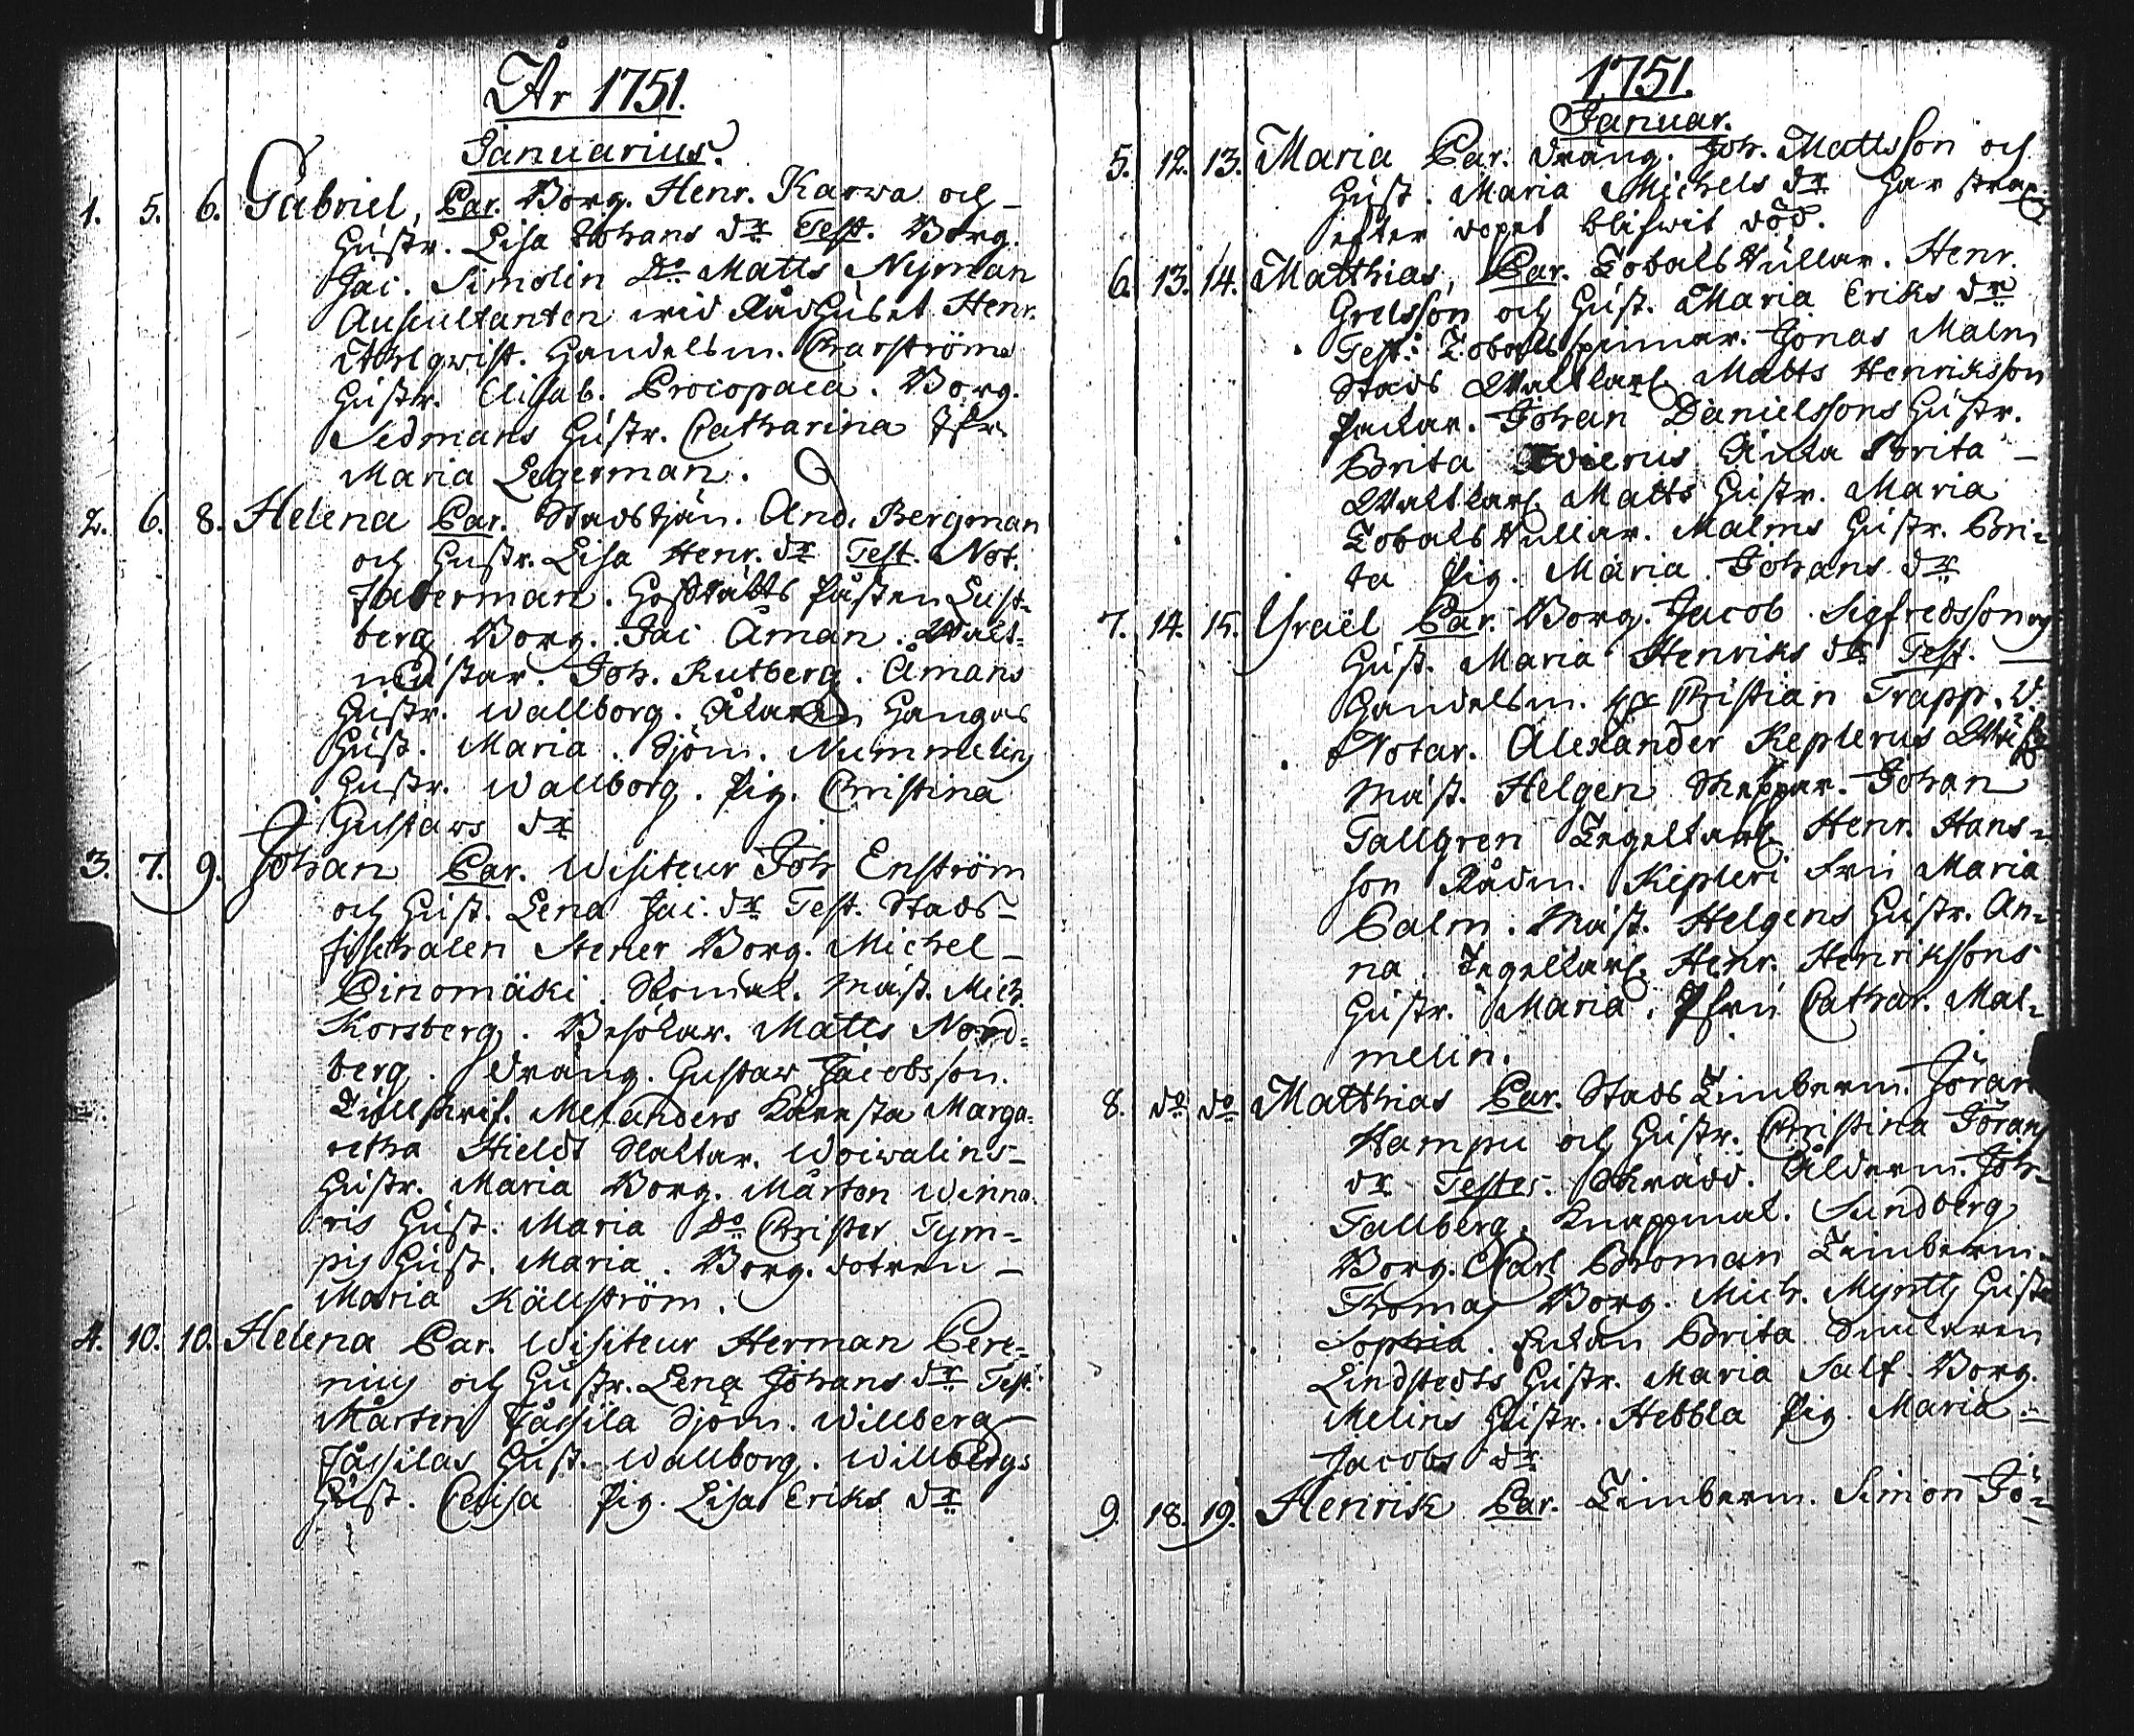 År 1751.
Januarius.
1. 5. 6. Gabriel, Par. Borg. Henr. Karwa och
Hustr. Lisa Johans dr Test. Borg.
Jac. Simolin do Matts Nyman
Auscultanten wid Rådhuset Henr.
Ahlqwist. Handelsm. Charströms
Hustr. Elisab. Procopaea. Borg.
Sedmans Hustr. Catharina Jfr.
Maria Legerman.
2. 6. 8. Helena Par. Stadstjän. And. Bergman
och Hustr. Lisa Henr. dr Test. Not.
Faterman. Påsten Lust-
berg Borg. Jac Åman. Walt-
mästar. Joh. Rutberg. Åmans
Hustr. Wallborg. Åkaren Hangas
Hust. Maria. Sjöm. Nummelins
Hustr. Wallborg. Pig. Christina
Gustavs dr
3. 7. 9. Johan Par. Wisiteur Joh Enström
och Hust. Lena Jac. dr Test. Stads-
fischalen Stener Borg. Michel
Pinomäki. Skomak. Mäst. Mich.
Korsberg. Besökar. Matts Nord-
berg. dräng. Gustav Jacobsson.
Tullskrif. Melanders Käresta Marga-
retha Hieldt Slaktar. Woiwalins
Hustr. Maria Borg. Mårten Winna-
ris Hust. Maria do Christer Tym-
pis Hust. Maria. Borg. dotren
Maria Källström.
4. 10. 10. Helena Par. Wisiteur Herman Pere-
nius och Hustr. Lena Johans dr Test.
Mårten Påssila Sjöm. Willberg
Påssilas Hust. Wallborg. Willbergs
Hust. Caisa Pig. Lisa Eriks dr
1751.
Januar.
5. 12. 13. Maria Par. dräng. Joh. Mattsson och
Hust. Maria Michels dr har strax
efter dopet blifwit död.
6. 13. 14. Matthias, Par. Tobaks Rullar. Henr.
Grelsson och Hust. Maria Eriks dr
Test. Tobaks spinnar. Jonas Malm
Stads Waktkarl Matts Henriksson
Packar. Johan Danielssons Hustr.
Brita Enka Brita
Waktkarl. Matts Hustr. Maria
Tobaks Rullar. Malms Hustr. Bri-
ta Pig. Maria Johans dr
7. 14. 15. Israël Par. Borg. Jacob Sigfredsson och
Hust. Maria Henriks dr Test.
Handelsm. Hr Christian Trapp. V.
Notar. Alexander Keplerus
mäst. Helgen Skeppar. Johan
Tallgren Tegelkarl. Henr. Hans-
son Rådm. Kepleri Fru Maria
Palm. Mäst. Helgens Hustr. An-
na. Tegelkarl. Henr. Henrikssons
Hustr. Maria. Jfru Cathar. Mal-
melin.
8. do do Matthias Par. Stads Timberm. Jöran
Hampu och Hustr. Christina Jörans
dr Testes. Skrädd. Ålderm. Joh.
Tallberg. Knappmak. Sundberg
Borg. Carl Broman Timberm.
Thomas Borg. Mich. Myntti Hustr
Sophia. Enkan Brita Snickeren
Lindstedts Hustr. Maria Salt. Borg.
Melins Hustr. Hebbla Pig Maria
Jacobs dr
9. 18. 19. Henrik Par. Timberm. Simon Jö-